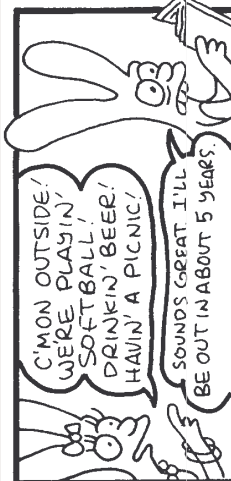 C'MON OUTSIDE!
WE'RE PLAYIN'
SOFTBALL!
DRINKIN' BEER!
HAVIN' A PICNIC!
SOUNDS GREAT. I'LL
BE OUT IN ABOUT 5 YEARS.